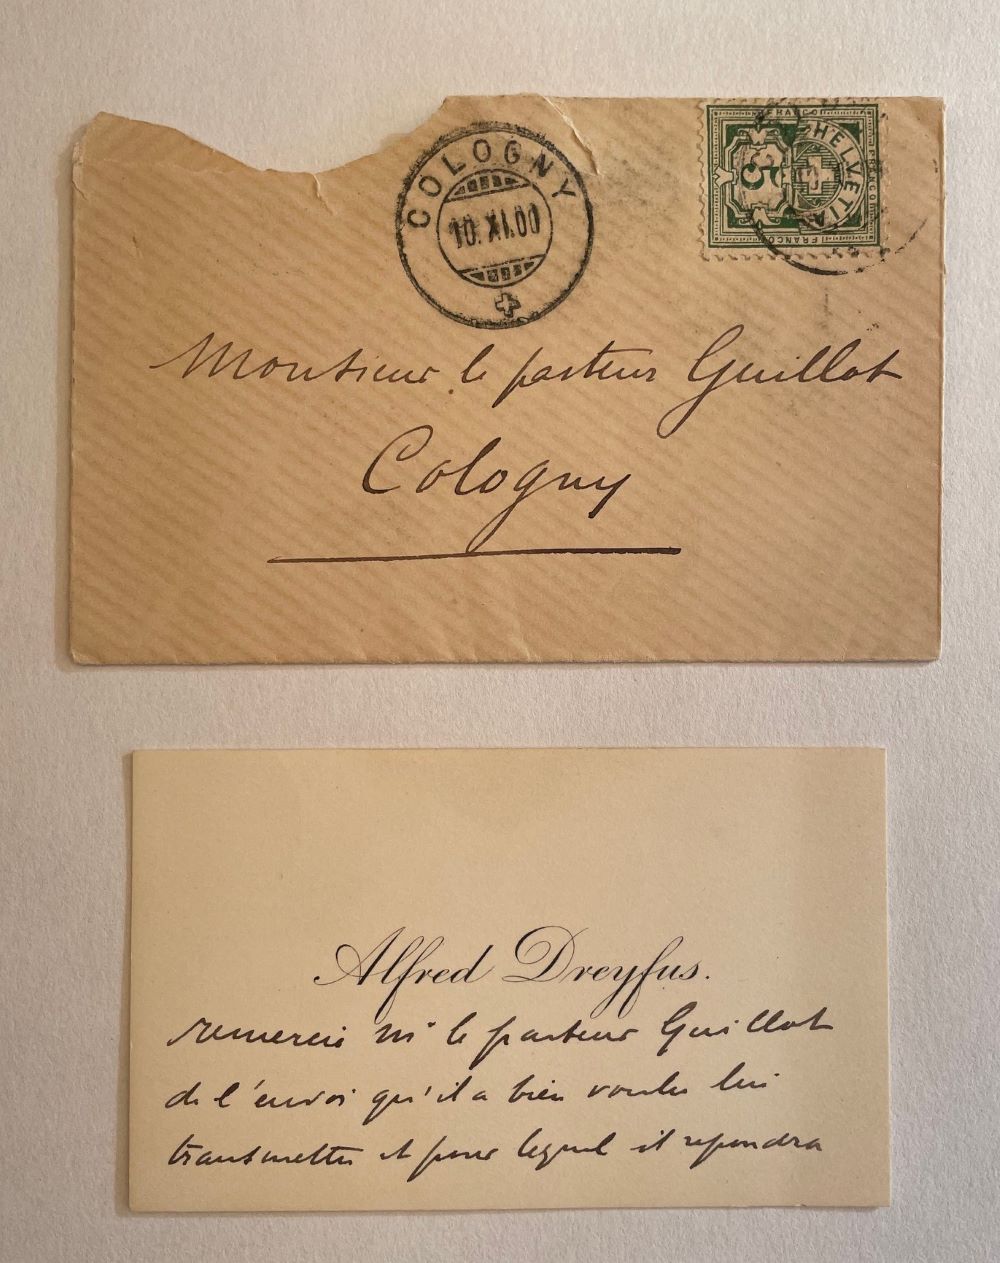 COLOGNY
10.XI.00
FRANCO
FRANCO
FRANCO
HELVETIA
5
Monsieur le pasteur Guillot
Cologny
Alfred Dreyfus.
remercie Mr le pasteur Guillot
de l'envoi qu'il a bien voulu lui
transmettre et pour lequel il repondra